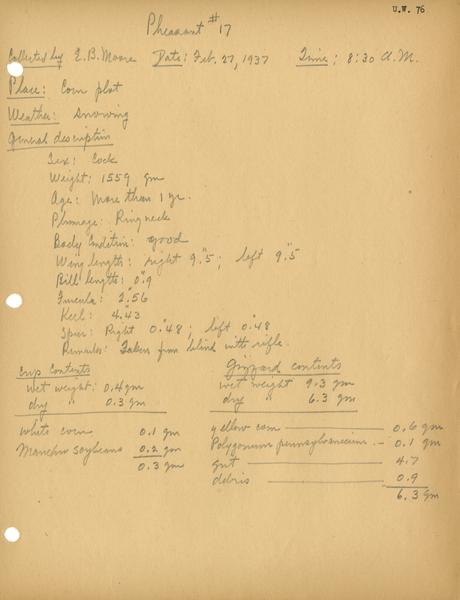 U.W. 76
Pheasant #17
Collected by E.B. Moore Date: Feb. 27, 1937 Time: 8:30 A.M.
Place: Corn plot
Weather: Snowing
General description
Sex: Cock
Weight: 1559 gm
Age: More than 1 yr.
Plumage: Ringneck
Body Condition: good
Wing lengths: right 9."5; left 9."5
Bill lengths: 0."9
Furcula: 2."56
Keel: 4."43
Spur: Right 0."48; left 0."48
Remarks: Taken from blind with rifle.
Crop Contents
wet weight: 0.4 gm
dry " 0.3 gm
white corn 0.1 gm
Manchu soybeans 0.2 gm
0.3 gm
Gizzard contents
wet weight 9.3 gm
dry " 6.3 gm
yellow corn 0.6 gm
Polygonum pennsylvanicum 0.1 gm
grit 4.7
debris 0.9
6.3 gm